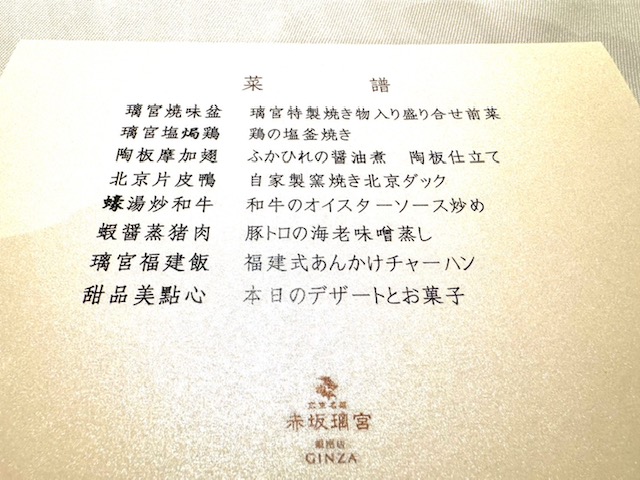 菜 譜
璃宮焼味盆 璃宮特製焼き物入り盛り合せ前菜
璃宮塩焗鶏 鶏の塩釜焼き
陶板摩加翅 ふかひれの醤油煮 陶板仕立て
北京片皮鴨 自家製窯焼き北京ダック
蠔湯炒和牛 和牛のオイスターソース炒め
蝦醤蒸猪肉 豚トロの海老味噌蒸し
璃宮福建飯 福建式あんかけチャーハン
甜品美點心 本日のデザートとお菓子
広東名菜
赤坂璃宮
銀座店
GINZA